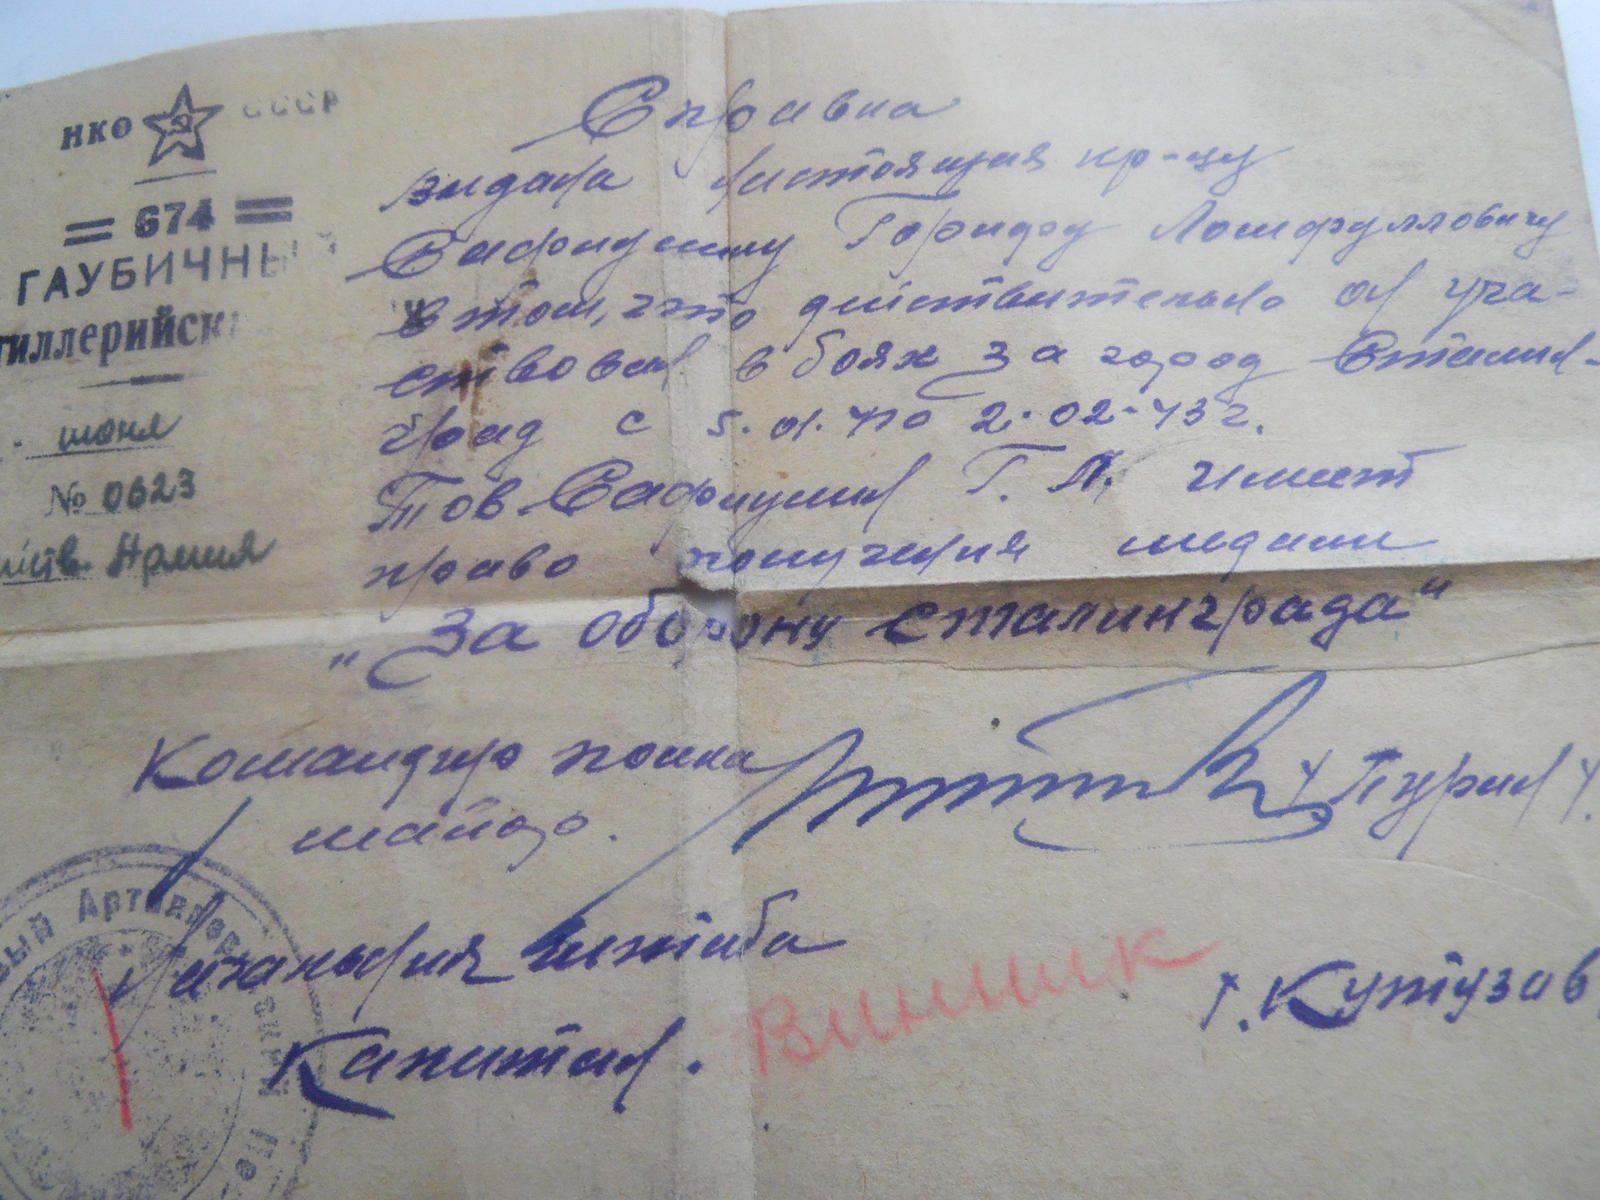 НКО СССР
= 674 =
ГАУБИЧНЫ
тиллерийск
июня
№ 0623
Армия
Справка
выдана настоящая кр-цу
Сафиулину Горифу Лотфулловичу
в том, что действительно он уча-
ствовал в боях за город Сталин-
град с 5.01. по 2.02.43 г.
Тов. Сафиулин Г. Л. имеет
право получения медали
"За оборону Сталинграда"
Командир полка
майор.
/Пурин/.
Начальник штаба
Капитан.
Винник
г. Кутузов
вый Артиллерийский По